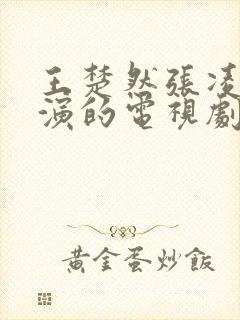 王楚然張凌
演的電視劇
黃金蛋炒飯